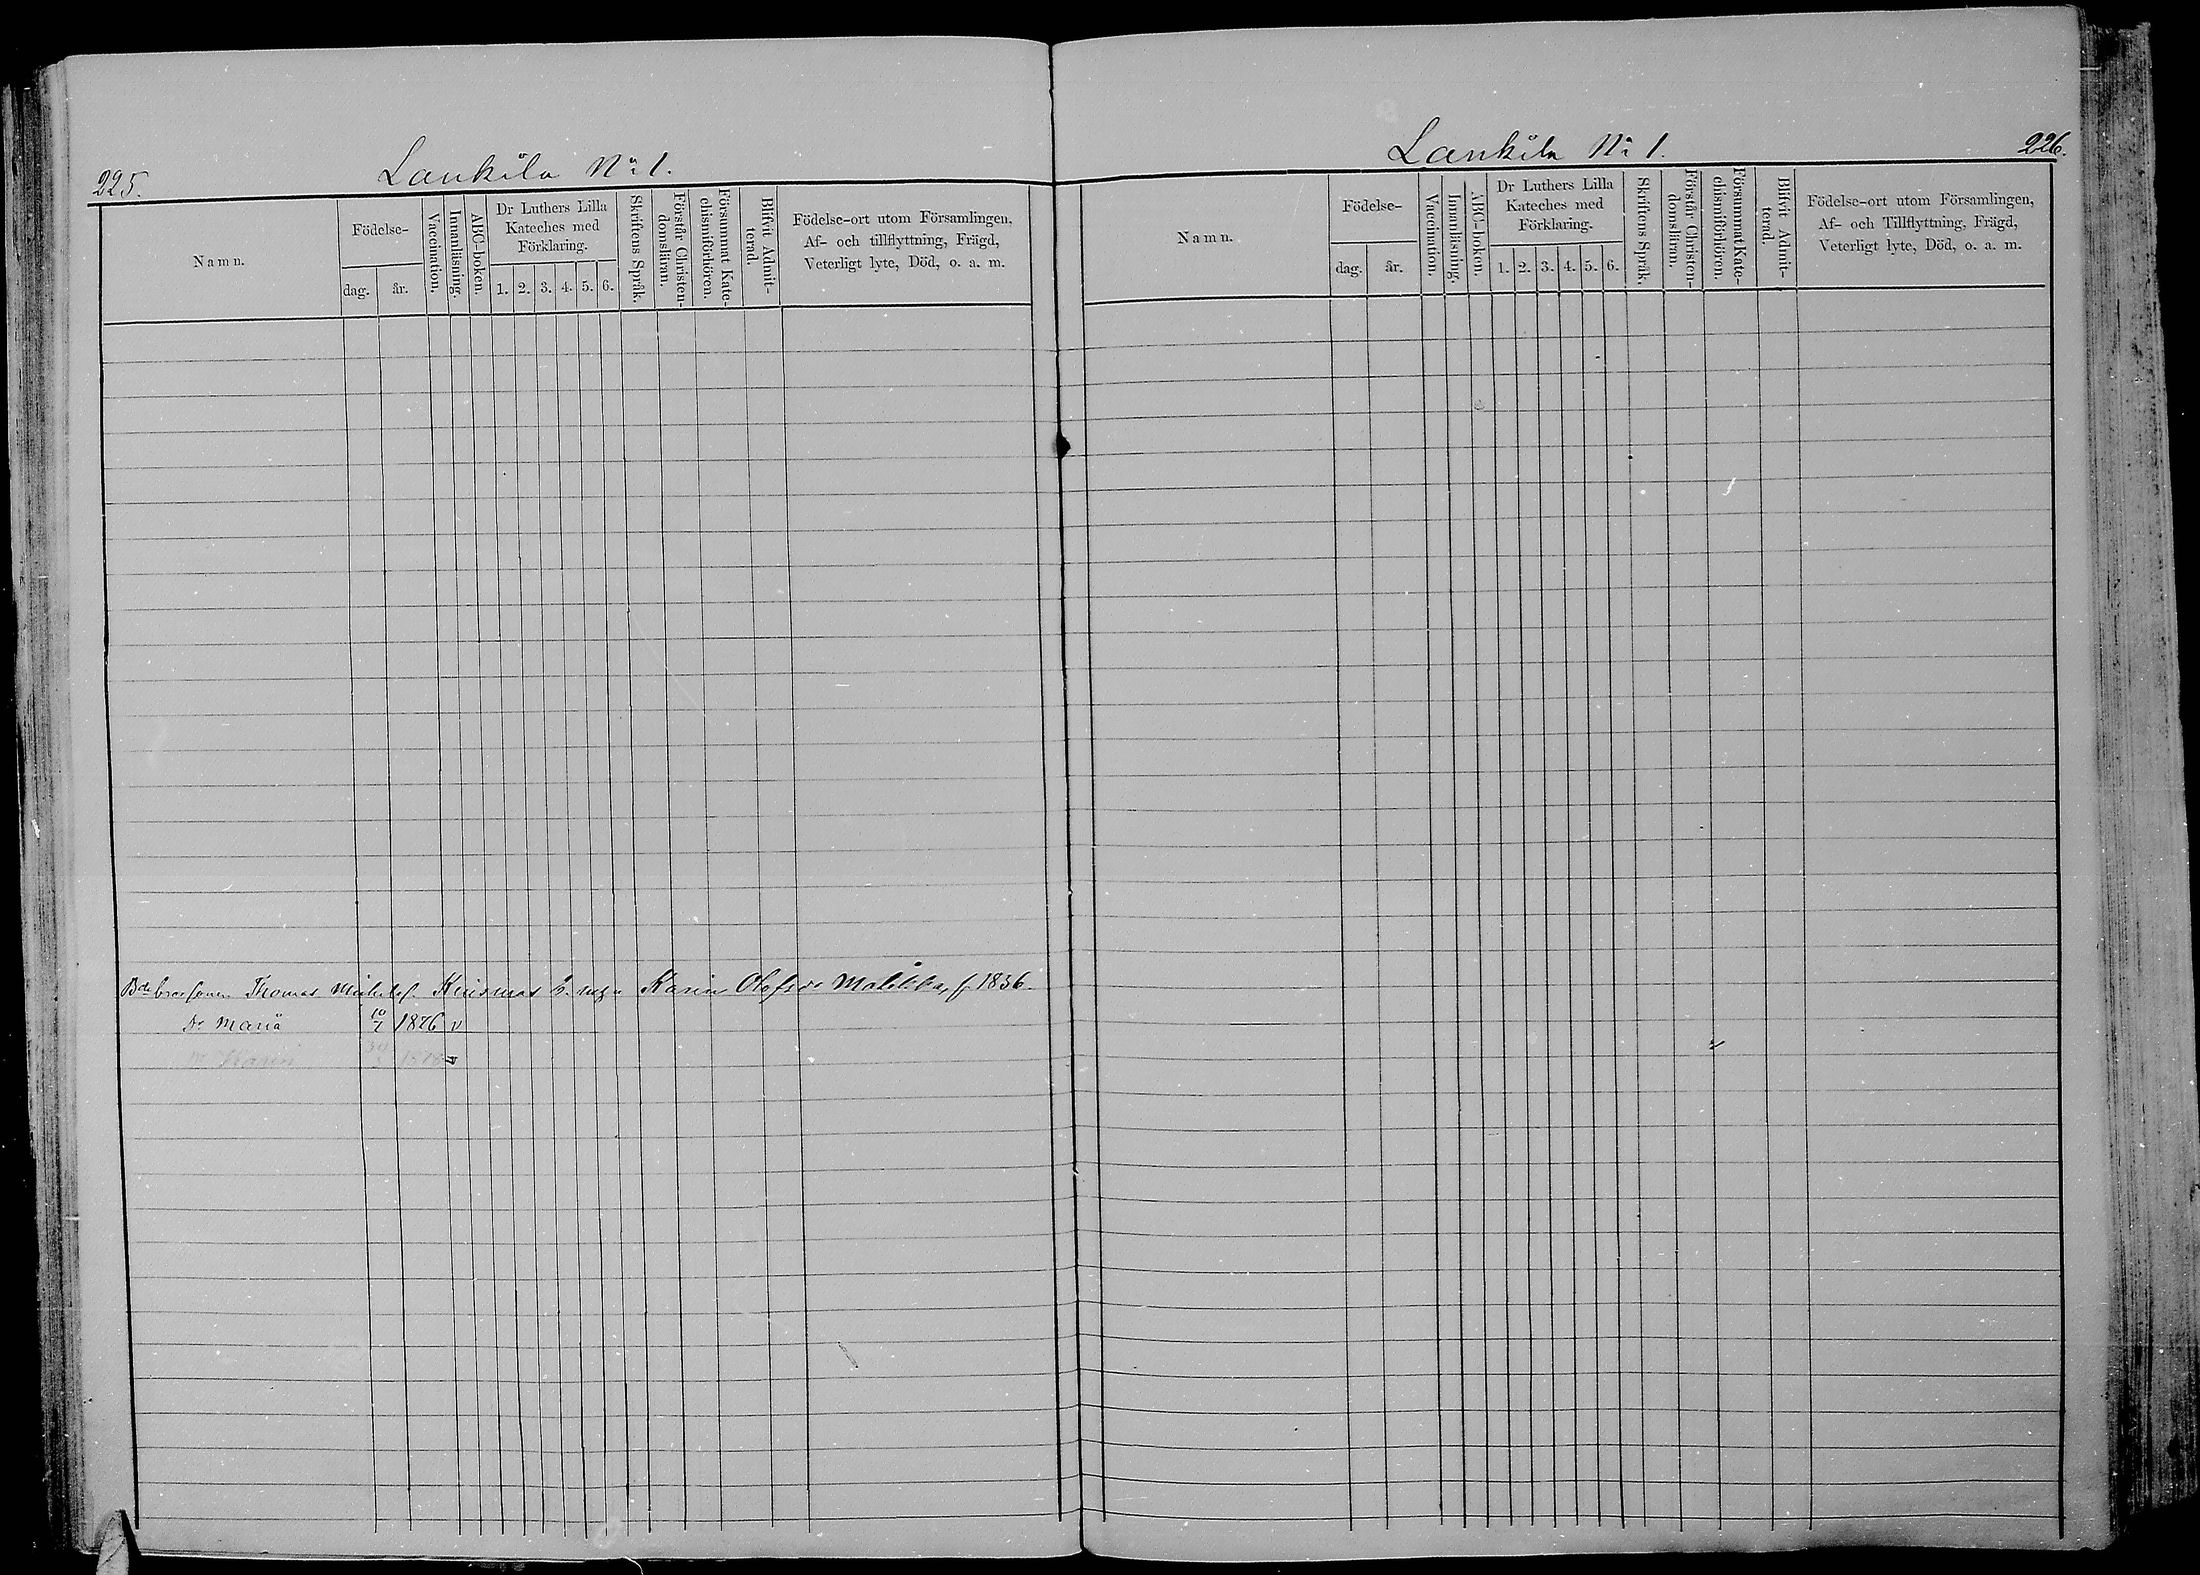 225.
Lankila No 1.
Namn.
Födelse-
dag.
år.
Vaccination.
Innanläsning.
ABC-boken.
Dr Luthers Lilla
Kateches med
Förklaring.
1. 2. 3. 4. 5. 6.
Skriftens Språk.
Förstår Christen-
domsläran.
Försummat Kate-
chismiförhören.
Blifvit Admit-
terad.
Födelse-ort utom Församlingen,
Af- och tillflyttning, Frägd,
Veterligt lyte, Död, o. a. m.
Thomas Michelsf. Karin Olofsdr f 1836.
Dr Maria 10/7 1876 v
Karin 30
Lankila No 1.
226.
Namn.
Födelse-
dag.
år.
Vaccination.
Innanläsning.
ABC-boken.
Dr Luthers Lilla
Kateches med
Förklaring.
1. 2. 3. 4. 5. 6.
Skriftens Språk.
Förstår Christen-
domsläran.
Försummat Kate-
chismiförhören.
Blifvit Admit-
terad.
Födelse-ort utom Församlingen,
Af- och Tillflyttning, Frägd,
Veterligt lyte, Död, o. a. m.